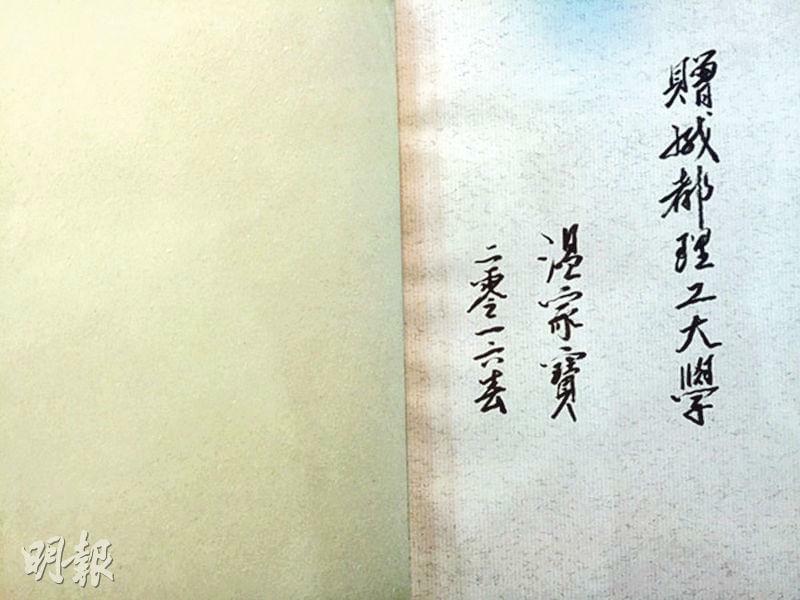 贈成都理工大學
溫家寶
二零一六春
明報